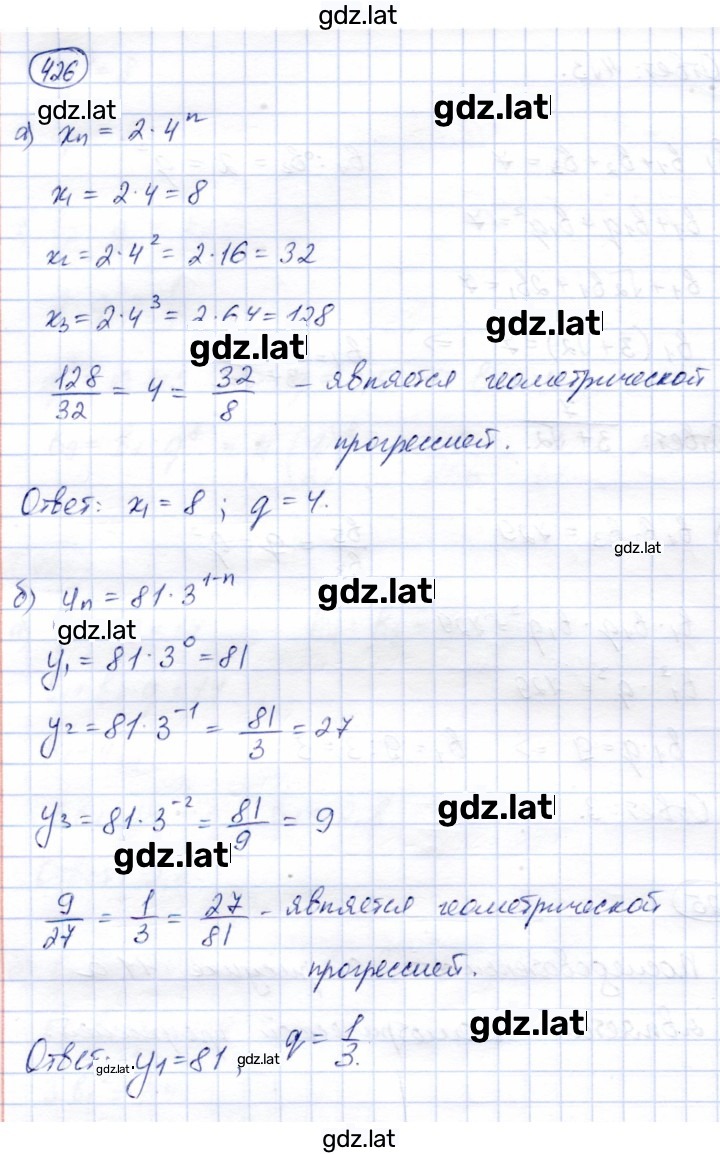 gdz.lat
426
gdz.lat
gdz.lat
а) xₙ = 2·4ⁿ
x₁ = 2·4 = 8
x₂ = 2·4² = 2·16 = 32
x₃ = 2·4³ = 2·64 = 128
gdz.lat
gdz.lat
128/32 = 4 = 32/8 – является геометрической
прогрессией.
Ответ: x₁ = 8 ; q = 4.
gdz.lat
б) yₙ = 81·3¹⁻ⁿ
gdz.lat
gdz.lat
y₁ = 81·3⁰ = 81
y₂ = 81·3⁻¹ = 81/3 = 27
gdz.lat
y₃ = 81·3⁻² = 81/9 = 9
gdz.lat
9/27 = 1/3 = 27/81 – является геометрической
прогрессией.
gdz.lat
Ответ: y₁ = 81 ; q = 1/3.
gdz.lat
gdz.lat
gdz.lat